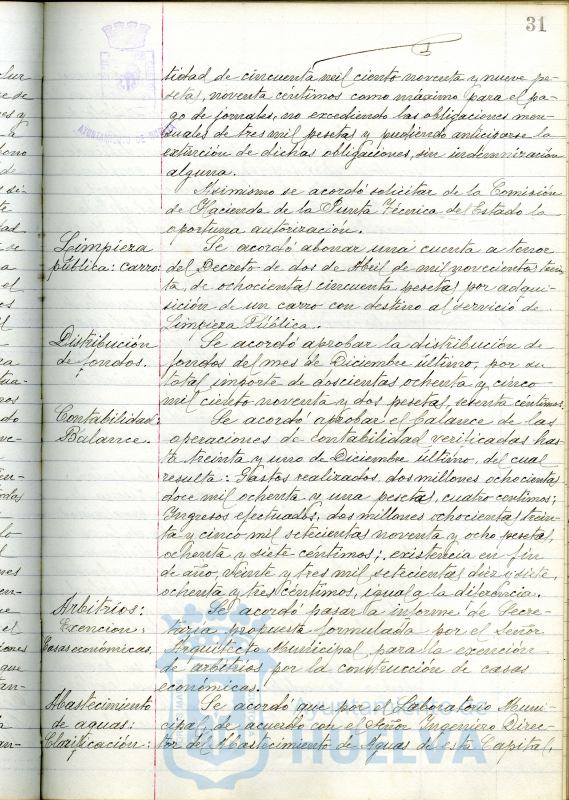 31
tidad de cincuenta mil ciento noventa y nueve pe-
setas, noventa céntimos como máximo para el pa-
go de jornales, no excediendo las obligaciones men-
suales de tres mil pesetas y pudiendo anticiparse la
extinción de dichas obligaciones, sin indemnización
alguna.
Asimismo se acordó solicitar de la Comisión
de Hacienda de la Junta Técnica del Estado la
oportuna autorización.
Limpieza
pública: carro:
Se acordó abonar una cuenta a tenor
del Decreto de dos de Abril de mil novecientos trein
ta, de ochocientas cincuenta pesetas por adqui-
sición de un carro con destino al servicio de
Limpieza Pública.
Distribución
de fondos.
Se acordó aprobar la distribución de
fondos del mes de Diciembre último, por su
total importe de doscientas ochenta y cinco
mil ciento noventa y dos pesetas, setenta céntimos.
Contabilidad:
Balance.
Se acordó aprobar el balance de las
operaciones de contabilidad verificadas has
ta treinta y uno de Diciembre último, del cual
resulta: Gastos realizados, dos millones ochocientas
doce mil ochenta y una pesetas, cuatro centimos;
Ingresos efectuados, dos millones ochocientas trein
ta y cinco mil setecientas noventa y ocho pesetas,
ochenta y siete céntimos; existencia en fin
de año, Veinte y tres mil setecientas diez y siete,
ochenta y tres céntimos, igual a la diferencia.
Arbitrios:
Exencion:
Casas económicas.
Se acordó pasar a informe de Secre-
taría propuesta formulada por el Señor
Arquitecto Municipal, para la exención
de arbitrios por la construcción de casas
económicas.
Abastecimiento
de aguas:
Clasificación:
Se acordó que por el Laboratorio Muni-
cipal, de acuerdo con el Señor Ingeniero Direc-
tor del Abastecimiento de Aguas de esta Capital,
AYUNTAMIENTO DE
HUELVA